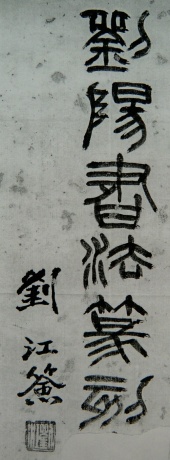 劉陽書法篆刻
劉江簽